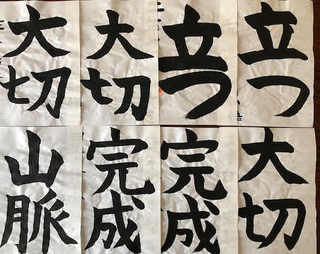 大切
大切
立つ
立つ
山脈
完成
完成
大切